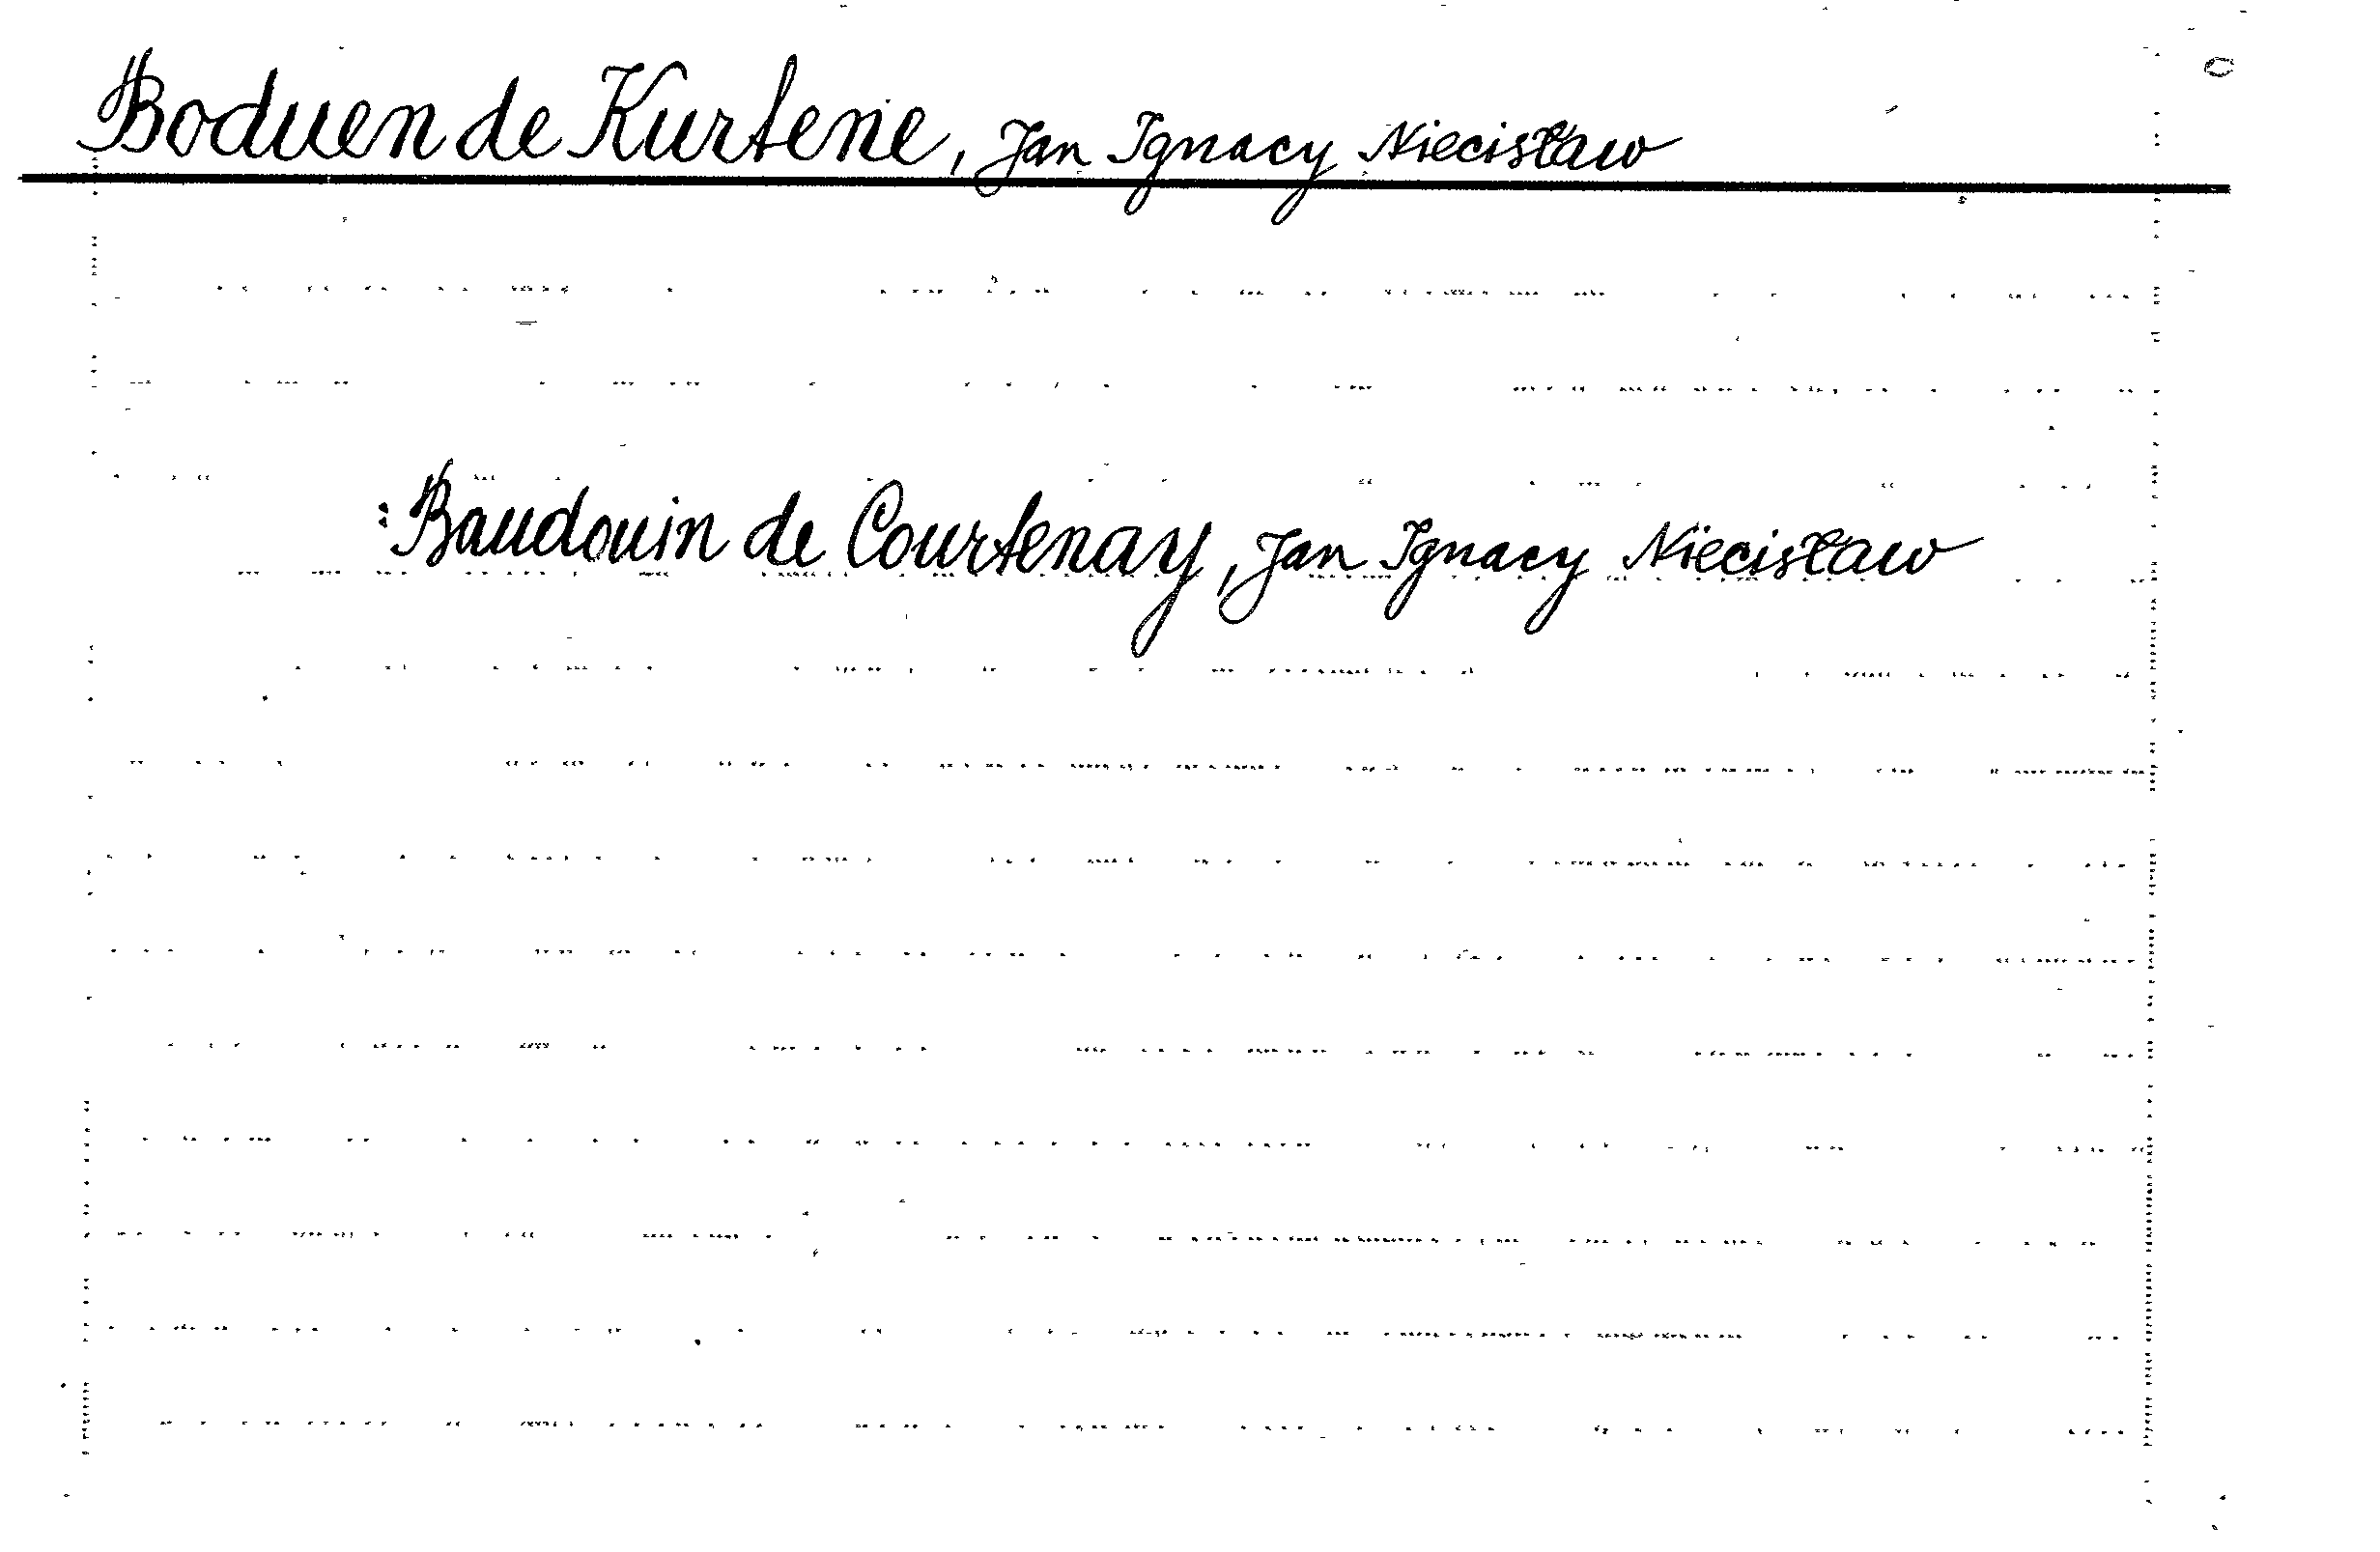 Boduen de Kurtene, Jan Ignacy Niecisław
: Baudouin de Courtenay, Jan Ignacy Niecisław